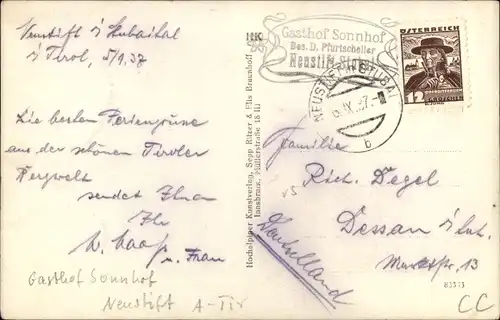 Neustift i/Stubaital
i/Tirol, 5/9.37
Die besten Feriengrüße
aus der schönen Tiroler
Bergwelt
sendet Ihnen
Ihr
u. Frau
Gasthof Sonnhof
Neustift A-Tir
HK
Hochalpiner Kunstverlag, Sepp Ritzer & Elis Braunhoff
Innsbruck, Pfüllerstraße 18 III
Gasthof Sonnhof
Bes. D. Pfurtscheller
Neustift-Stubai
NEUSTIFT IM STUBAI
b
ÖSTERREICH
12 GROSCHEN
Familie
Rich. Degel
Dessau i/Anh.
Marktstr. 13
Deutschland
83373
CC